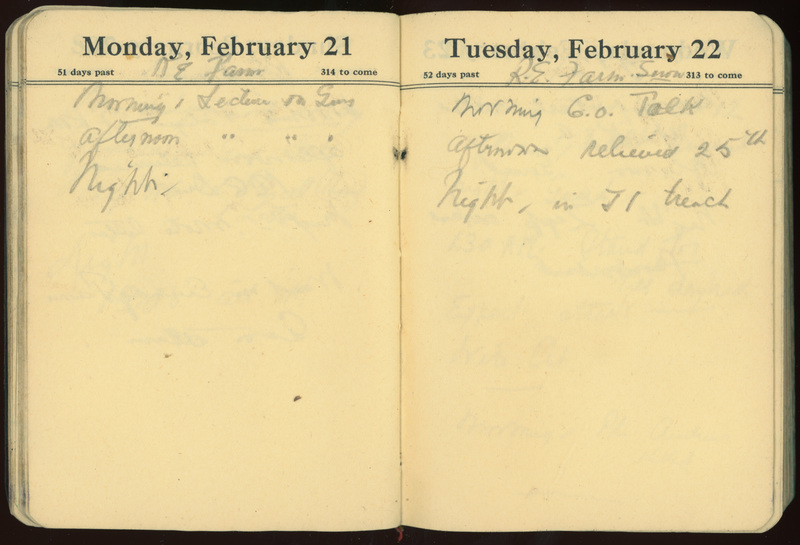 Monday, February 21
51 days past R E Farm 314 to come
Morning, Lecture on Guns
Afternoon " " "
Night,
Tuesday, February 22
52 days past R.E. Farm 313 to come
Morning C.O. Talk
Afternoon relieved 25th
Night, in J1 trench